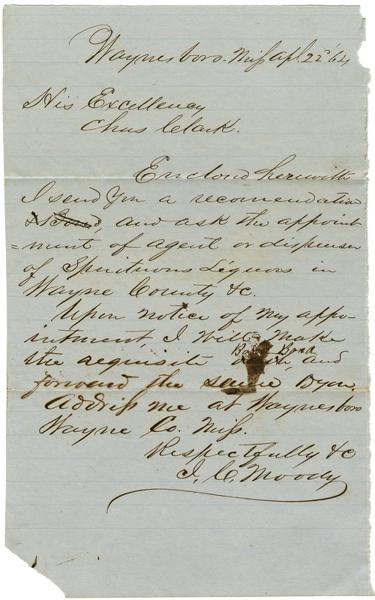 Waynesboro. Miss Apl. 22d '64
His Excellency
Chas Clark.
Enclosed herewith
I send you a recomendation
& Bond, and ask the appoint
=ment of agent or dispenser
of Spirituous Liquors in
Wayne County &c.
Upon notice of my appo-
intment I will make
the aequisite Bond, and
forward the same
Address me at Waynesboro
Wayne Co. Miss.
Respectfully &c
J. C. Moody